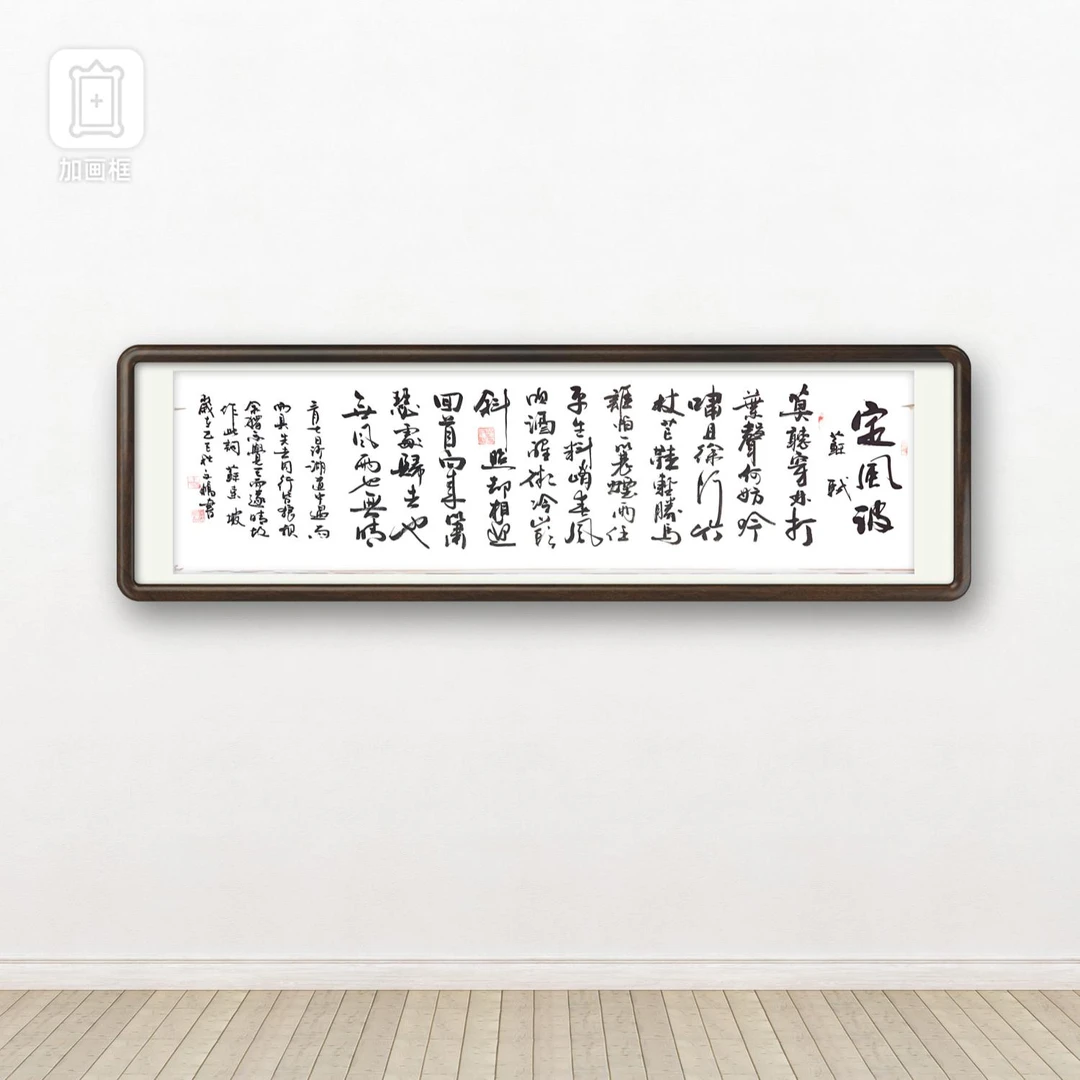 加画框
定風波
蘇軾
莫聽穿林打
葉聲何妨吟
嘯且徐行竹
杖芒鞋輕勝馬
誰怕一蓑煙雨任
平生料峭春風
吹酒醒微冷山頭
斜照却相迎
回首向來蕭
瑟處歸去也
無風雨也無晴
三月七日沙湖道中遇雨
雨具先去同行皆狼狽
余獨不覺已而遂晴故
作此詞 蘇東坡
歲在乙巳秋文書